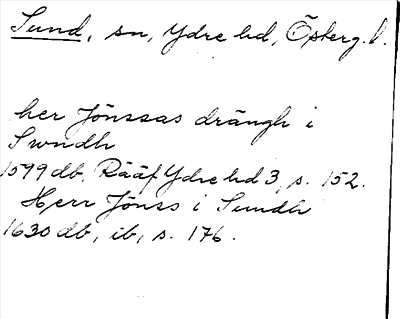 Sund, sn, Ydre hd, Österg
her Jönssas drängh i
Swndh
1599 db, Rääf Ydre hd 3, s. 152.
Herr Jönss i Sundh
1630 db, ib, s. 176.